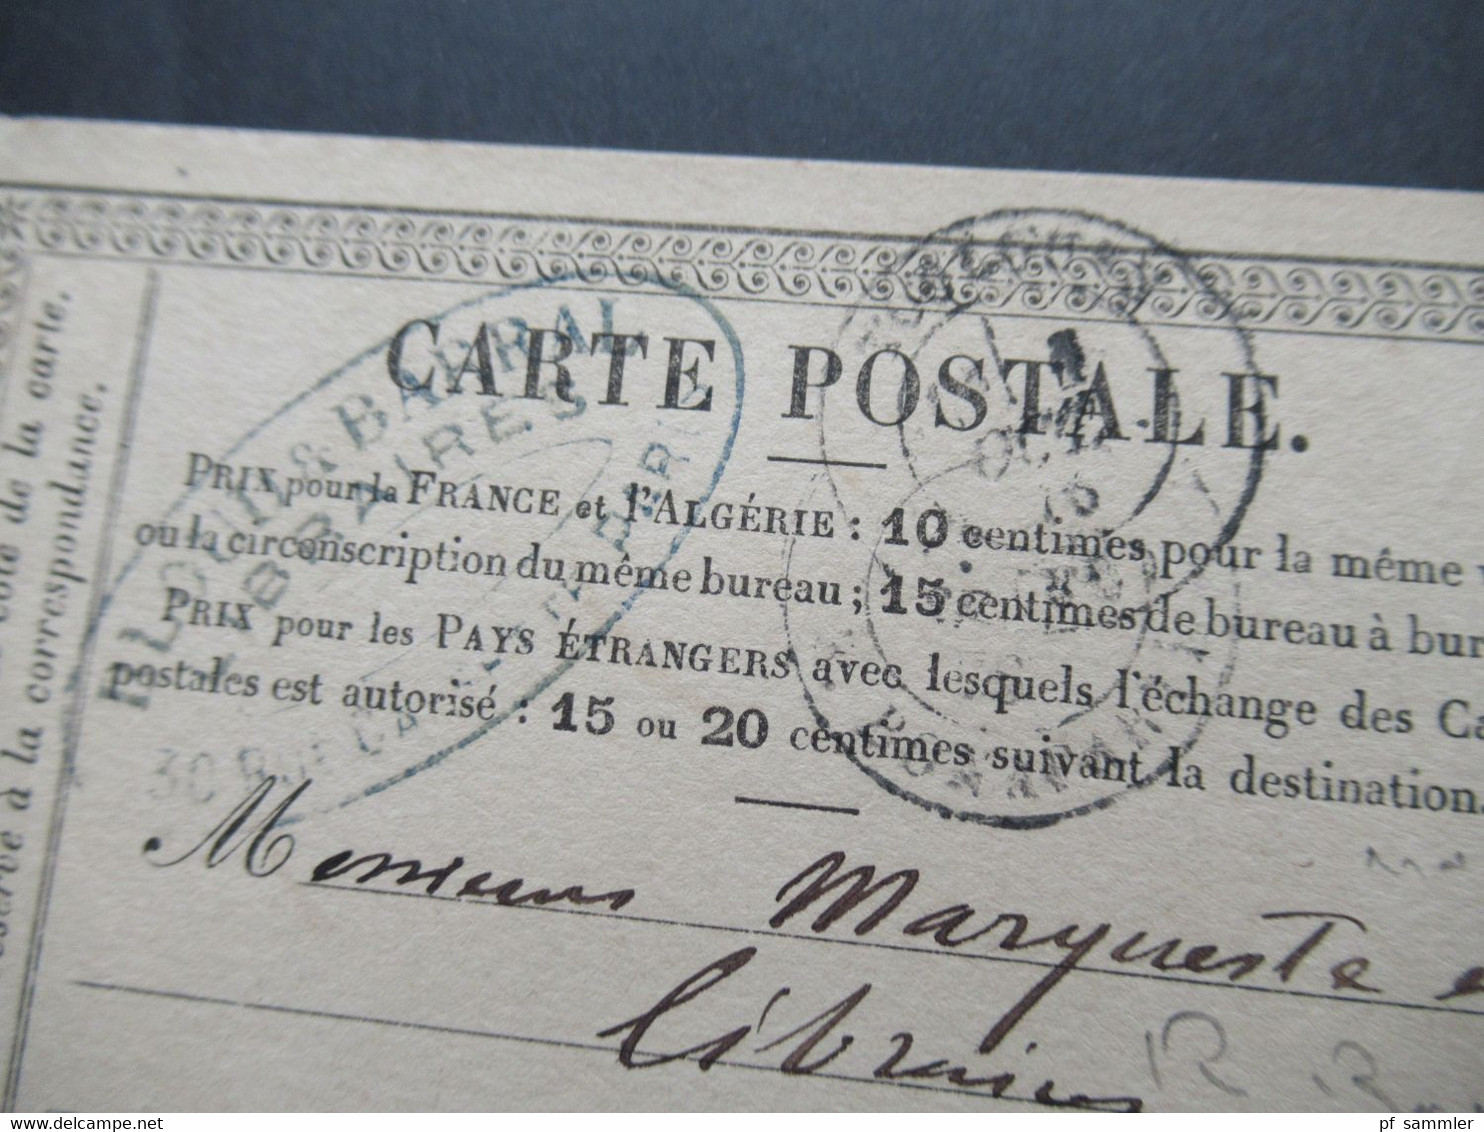 CARTE POSTALE.
PRIX pour la FRANCE et l'ALGÉRIE : 10 centimes pour la même
ou la circonscription du même bureau ; 15 centimes de bureau à bur
PRIX pour les PAYS ÉTRANGERS avec lesquels l'échange des Ca
postales est autorisé : 15 ou 20 centimes suivant la destination.
Messieurs Marqueste
libraires
& BARRAL
LIBRAIRES
30 RUE
PARIS
côté de la carte.
réservé à la correspondance.
pf_sammler
www.delcampe.net